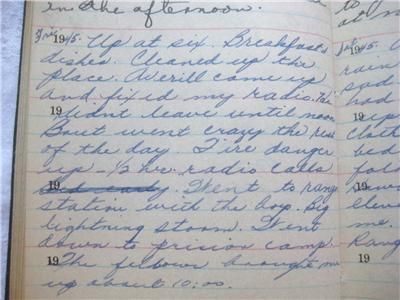 in the afternoon.
Fri 1945. Up at six. Breakfast &
dishes. Cleaned up the
place. Averill came up
and fixed my radio. He
19 didnt leave until noon
Bout went crazy the rest
of the day. Fire danger
up. 1/2 hr. radio calls
19 . Went to rang
station with the boys. Big
lightning storm. Went
down to prision camp.
19 The fellows brought me
up about 10:00.
to
at
Sat 1945.
rain
sad
had
19 up
cloth
bed
fold
19
eleve
me.
Rang
19